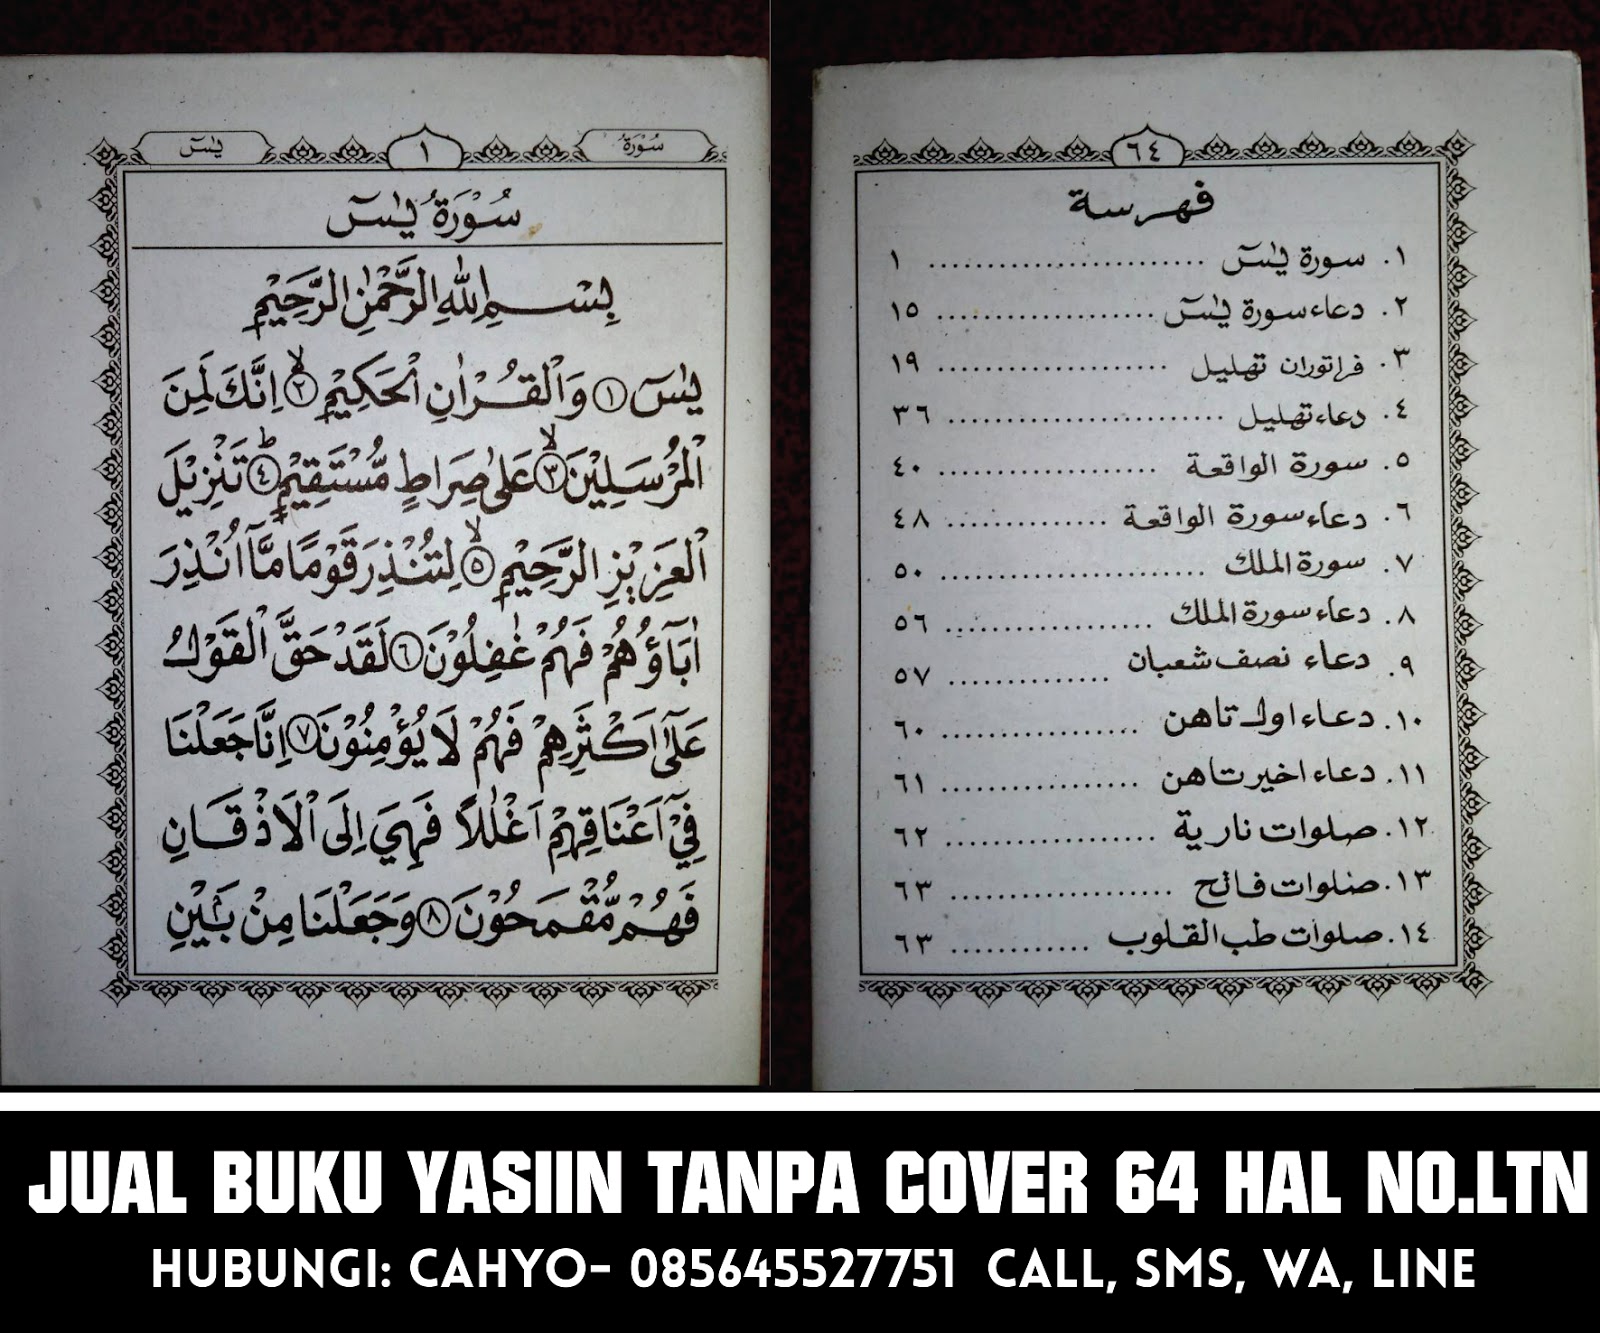 سُوْرَةُ
١
يٰسٓ
سُوْرَةُ يٰسٓ
بِسْمِ اللّٰهِ الرَّحْمٰنِ الرَّحِيْمِ
يٰسٓ ١ وَالْقُرْاٰنِ الْحَكِيْمِ ٢ۙ اِنَّكَ لَمِنَ
الْمُرْسَلِيْنَ ٣ۙ عَلٰى صِرَاطٍ مُّسْتَقِيْمٍ ٤ۗ تَنْزِيْلَ
الْعَزِيْزِ الرَّحِيْمِ ٥ۙ لِتُنْذِرَ قَوْمًا مَّآ اُنْذِرَ
اٰبَآؤُهُمْ فَهُمْ غٰفِلُوْنَ ٦ لَقَدْ حَقَّ الْقَوْلُ
عَلٰٓى اَكْثَرِهِمْ فَهُمْ لَا يُؤْمِنُوْنَ ٧ اِنَّا جَعَلْنَا
فِيْٓ اَعْنَاقِهِمْ اَغْلٰلًا فَهِيَ اِلَى الْاَذْقَانِ
فَهُمْ مُّقْمَحُوْنَ ٨ وَجَعَلْنَا مِنْ بَيْنِ
٦٤
فهرسة
١. سورة يٰسٓ ........................ ١
٢. دعاء سورة يٰسٓ ................... ١٥
٣. فراتوران تهليل .................... ١٩
٤. دعاء تهليل ........................ ٣٦
٥. سورة الواقعة .................... ٤٠
٦. دعاء سورة الواقعة .............. ٤٨
٧. سورة الملك ........................ ٥٠
٨. دعاء سورة الملك ................... ٥٦
٩. دعاء نصف شعبان .............. ٥٧
١٠. دعاء اول تاهن ................. ٦٠
١١. دعاء اخير تاهن ................. ٦١
١٢. صلوات نارية .................. ٦٢
١٣. صلوات فاتح .................... ٦٣
١٤. صلوات طب القلوب ............ ٦٣
JUAL BUKU YASIIN TANPA COVER 64 HAL NO.LTN
HUBUNGI: CAHYO- 085645527751 CALL, SMS, WA, LINE